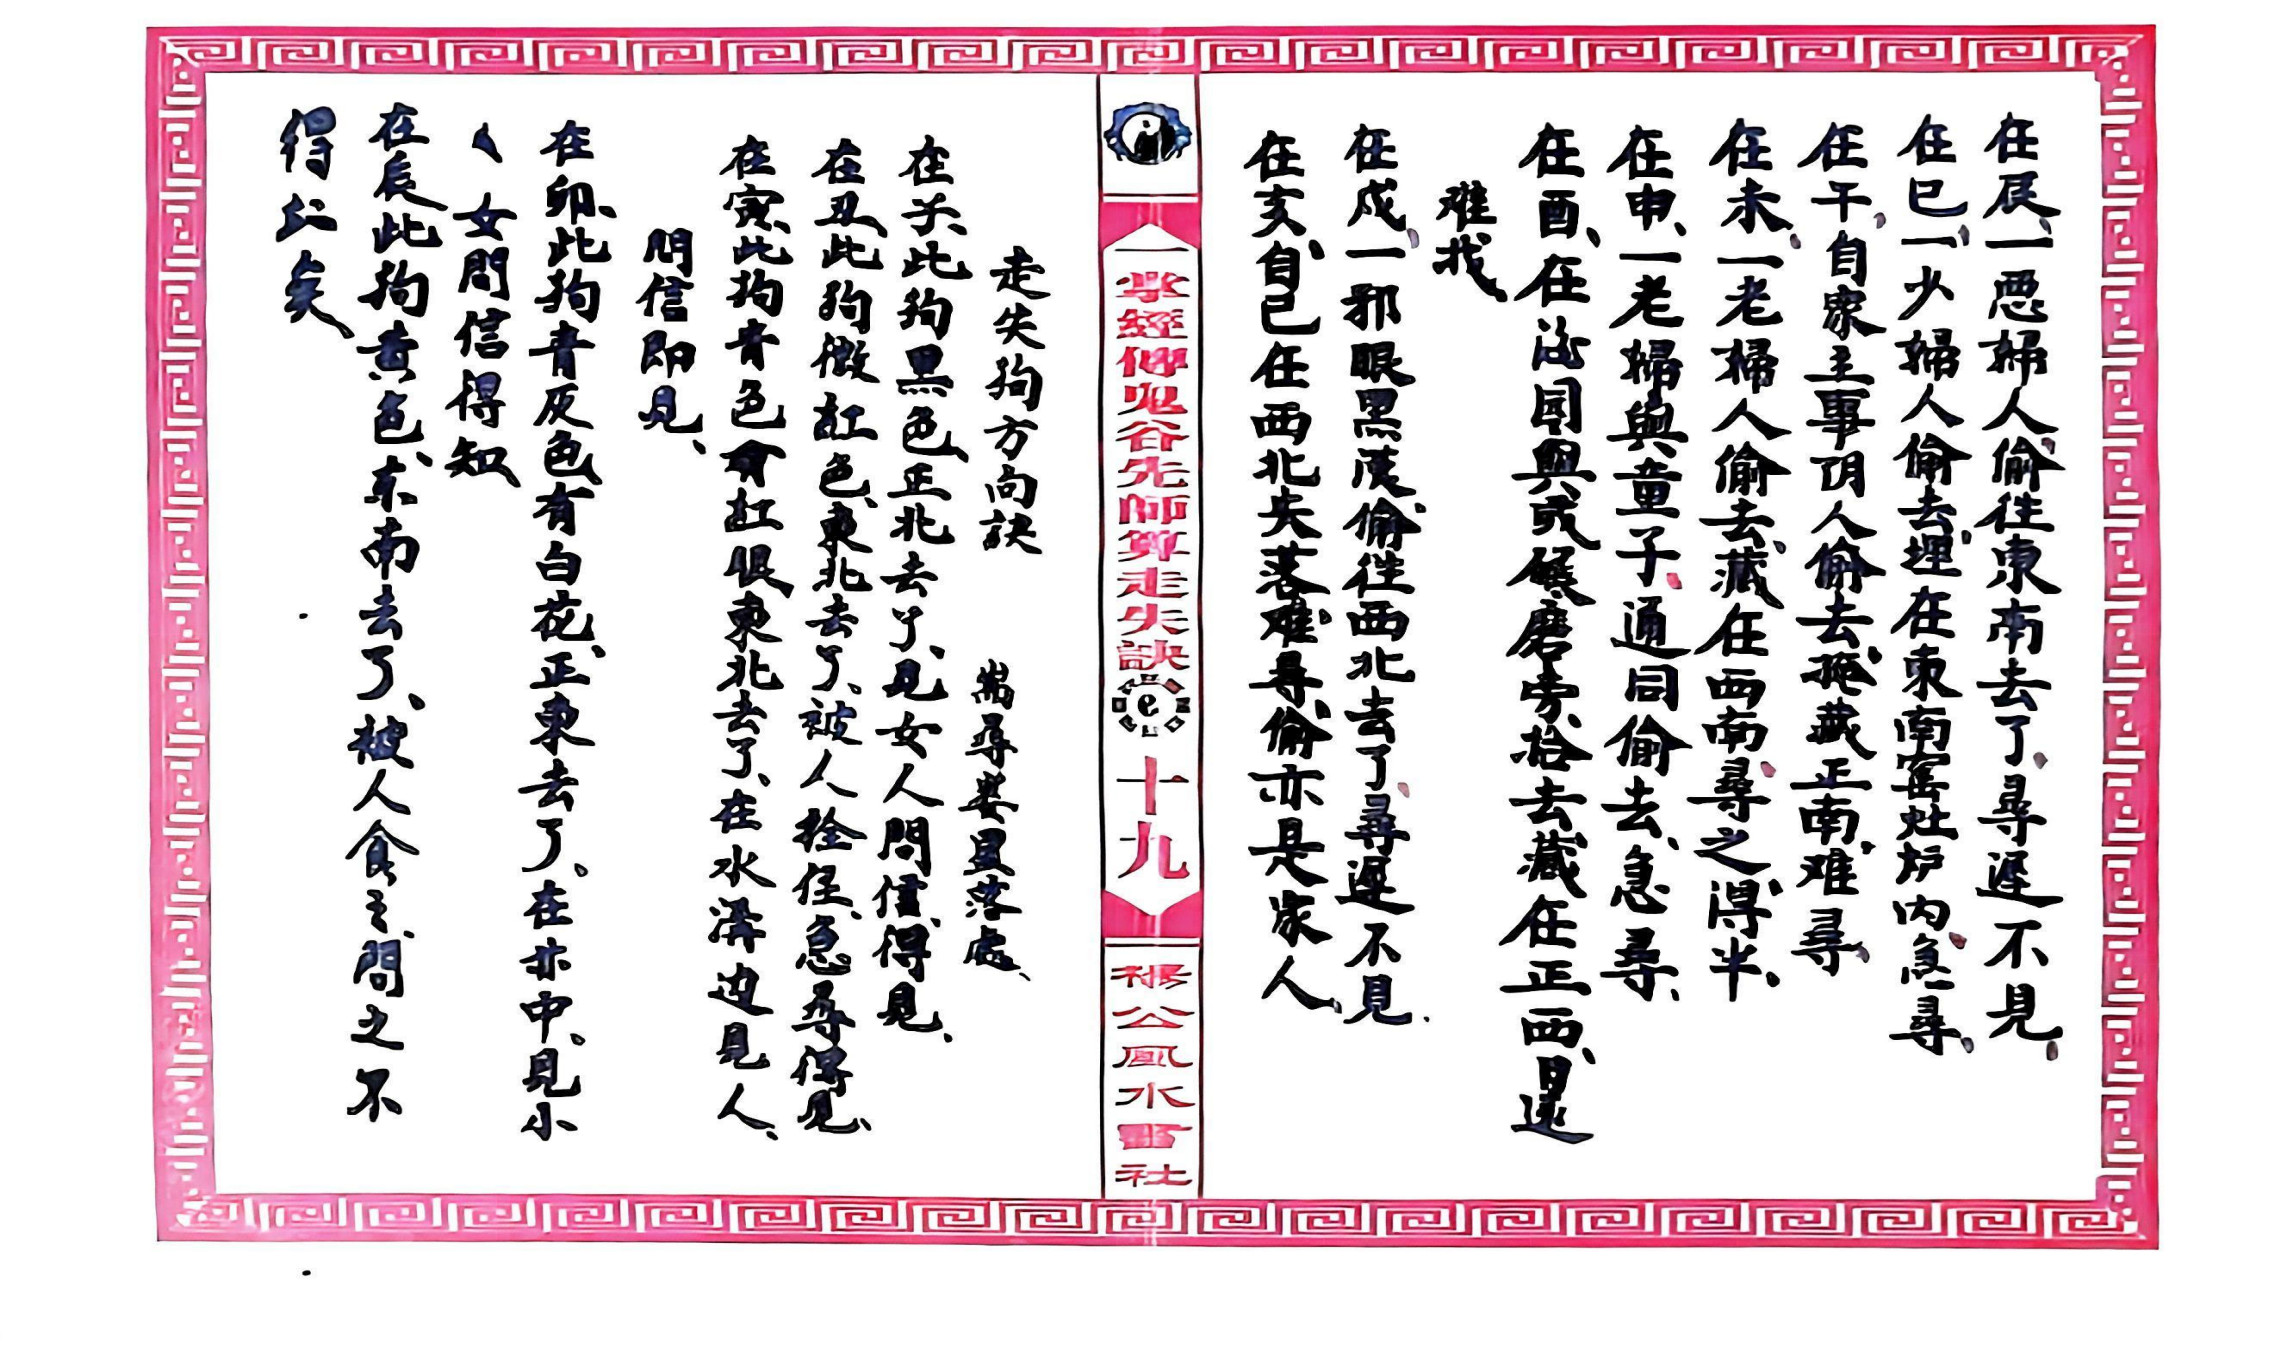 在辰、一惡婦人偷往東南去了、尋遲不見、
在巳、一少婦人偷去、埋在東南窰灶炉内、急尋、
在午、自家主事阴人偷去、拖藏正南、难尋、
在未、一老婦人偷去、藏在西南、尋之得半、
在申、一老婦與童子、通同偷去、急尋、
在酉、在園與或碾磨旁、拾去藏在正西、
难找
在戍、一邪眼黑漢偷往西北去了、尋遲不見.
在亥、自己在西北失落、难尋、偷亦是家人、
一掌經傳鬼谷先師算走失訣
十九
楊公風水書社
走失狗方向訣 尋落處、
在子、此狗黑色、正北去了、見女人問信、得見、
在丑、此狗微紅色、東北去了、被人拴住、急尋得見、
在寅、此狗青色有紅眼東北去了、在水溝边見人、
問信即見、
在卯、此狗青灰色有白花、正東去了、在中、見小
女問信得知
在辰此狗黄色、东南去了、被人食之、問之不
得矣